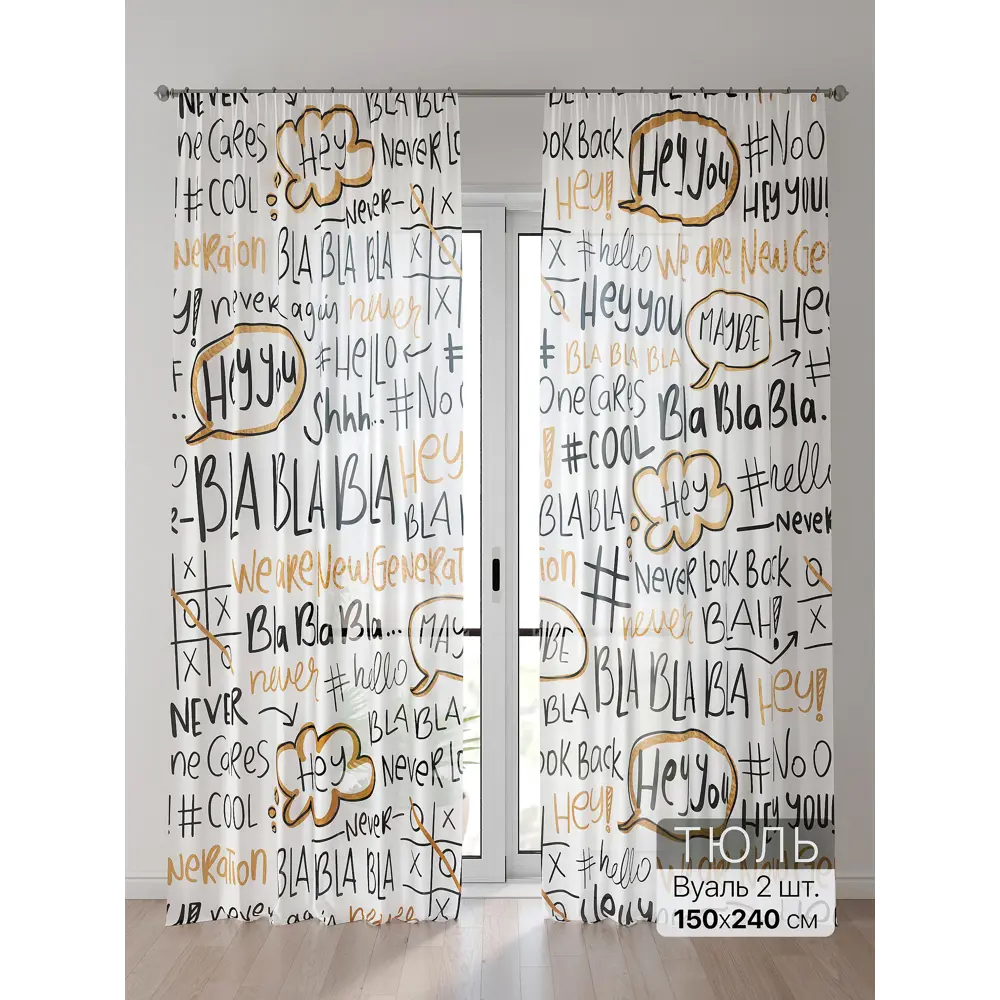 NEVER
BLA BLA
ne CaRes
Hey
NeveR Lo
! #COOL
NEVER-
O X
neRation
BLA BLA BLA
X O
y! never again never
X
Hey you
#Hello
#
F
Shhh...
#No O
BLA BLA BLA
Hey
BLA
X
We are New GeneRat
O X
Bla Bla Bla...
MAY
X O
never #hello
NEVER
BLA BLA
ne CaRes
Hey
NeveR Lo
! #COOL
NEVER-
O X
neRation
BLA BLA BLA
X O
y! never again never
ook Back
Hey you
#No O
Hey!
HEY YOU!
X #hello We are New Ge
O Hey you
MAYBE
Hey
# BLA BLA BLA
#
One CaRes
Bla Bla Bla.
! #COOL
Hey
#hello
BLA BLA
NEVER
ion
# NeveR Look Back O
never BLAH! X
BE
BLA BLA BLA BLA Hey!
ook Back
Hey you
#No O
Hey!
HEY YOU!
X #hello
ТЮЛЬ
Вуаль 2 шт.
150х240 см